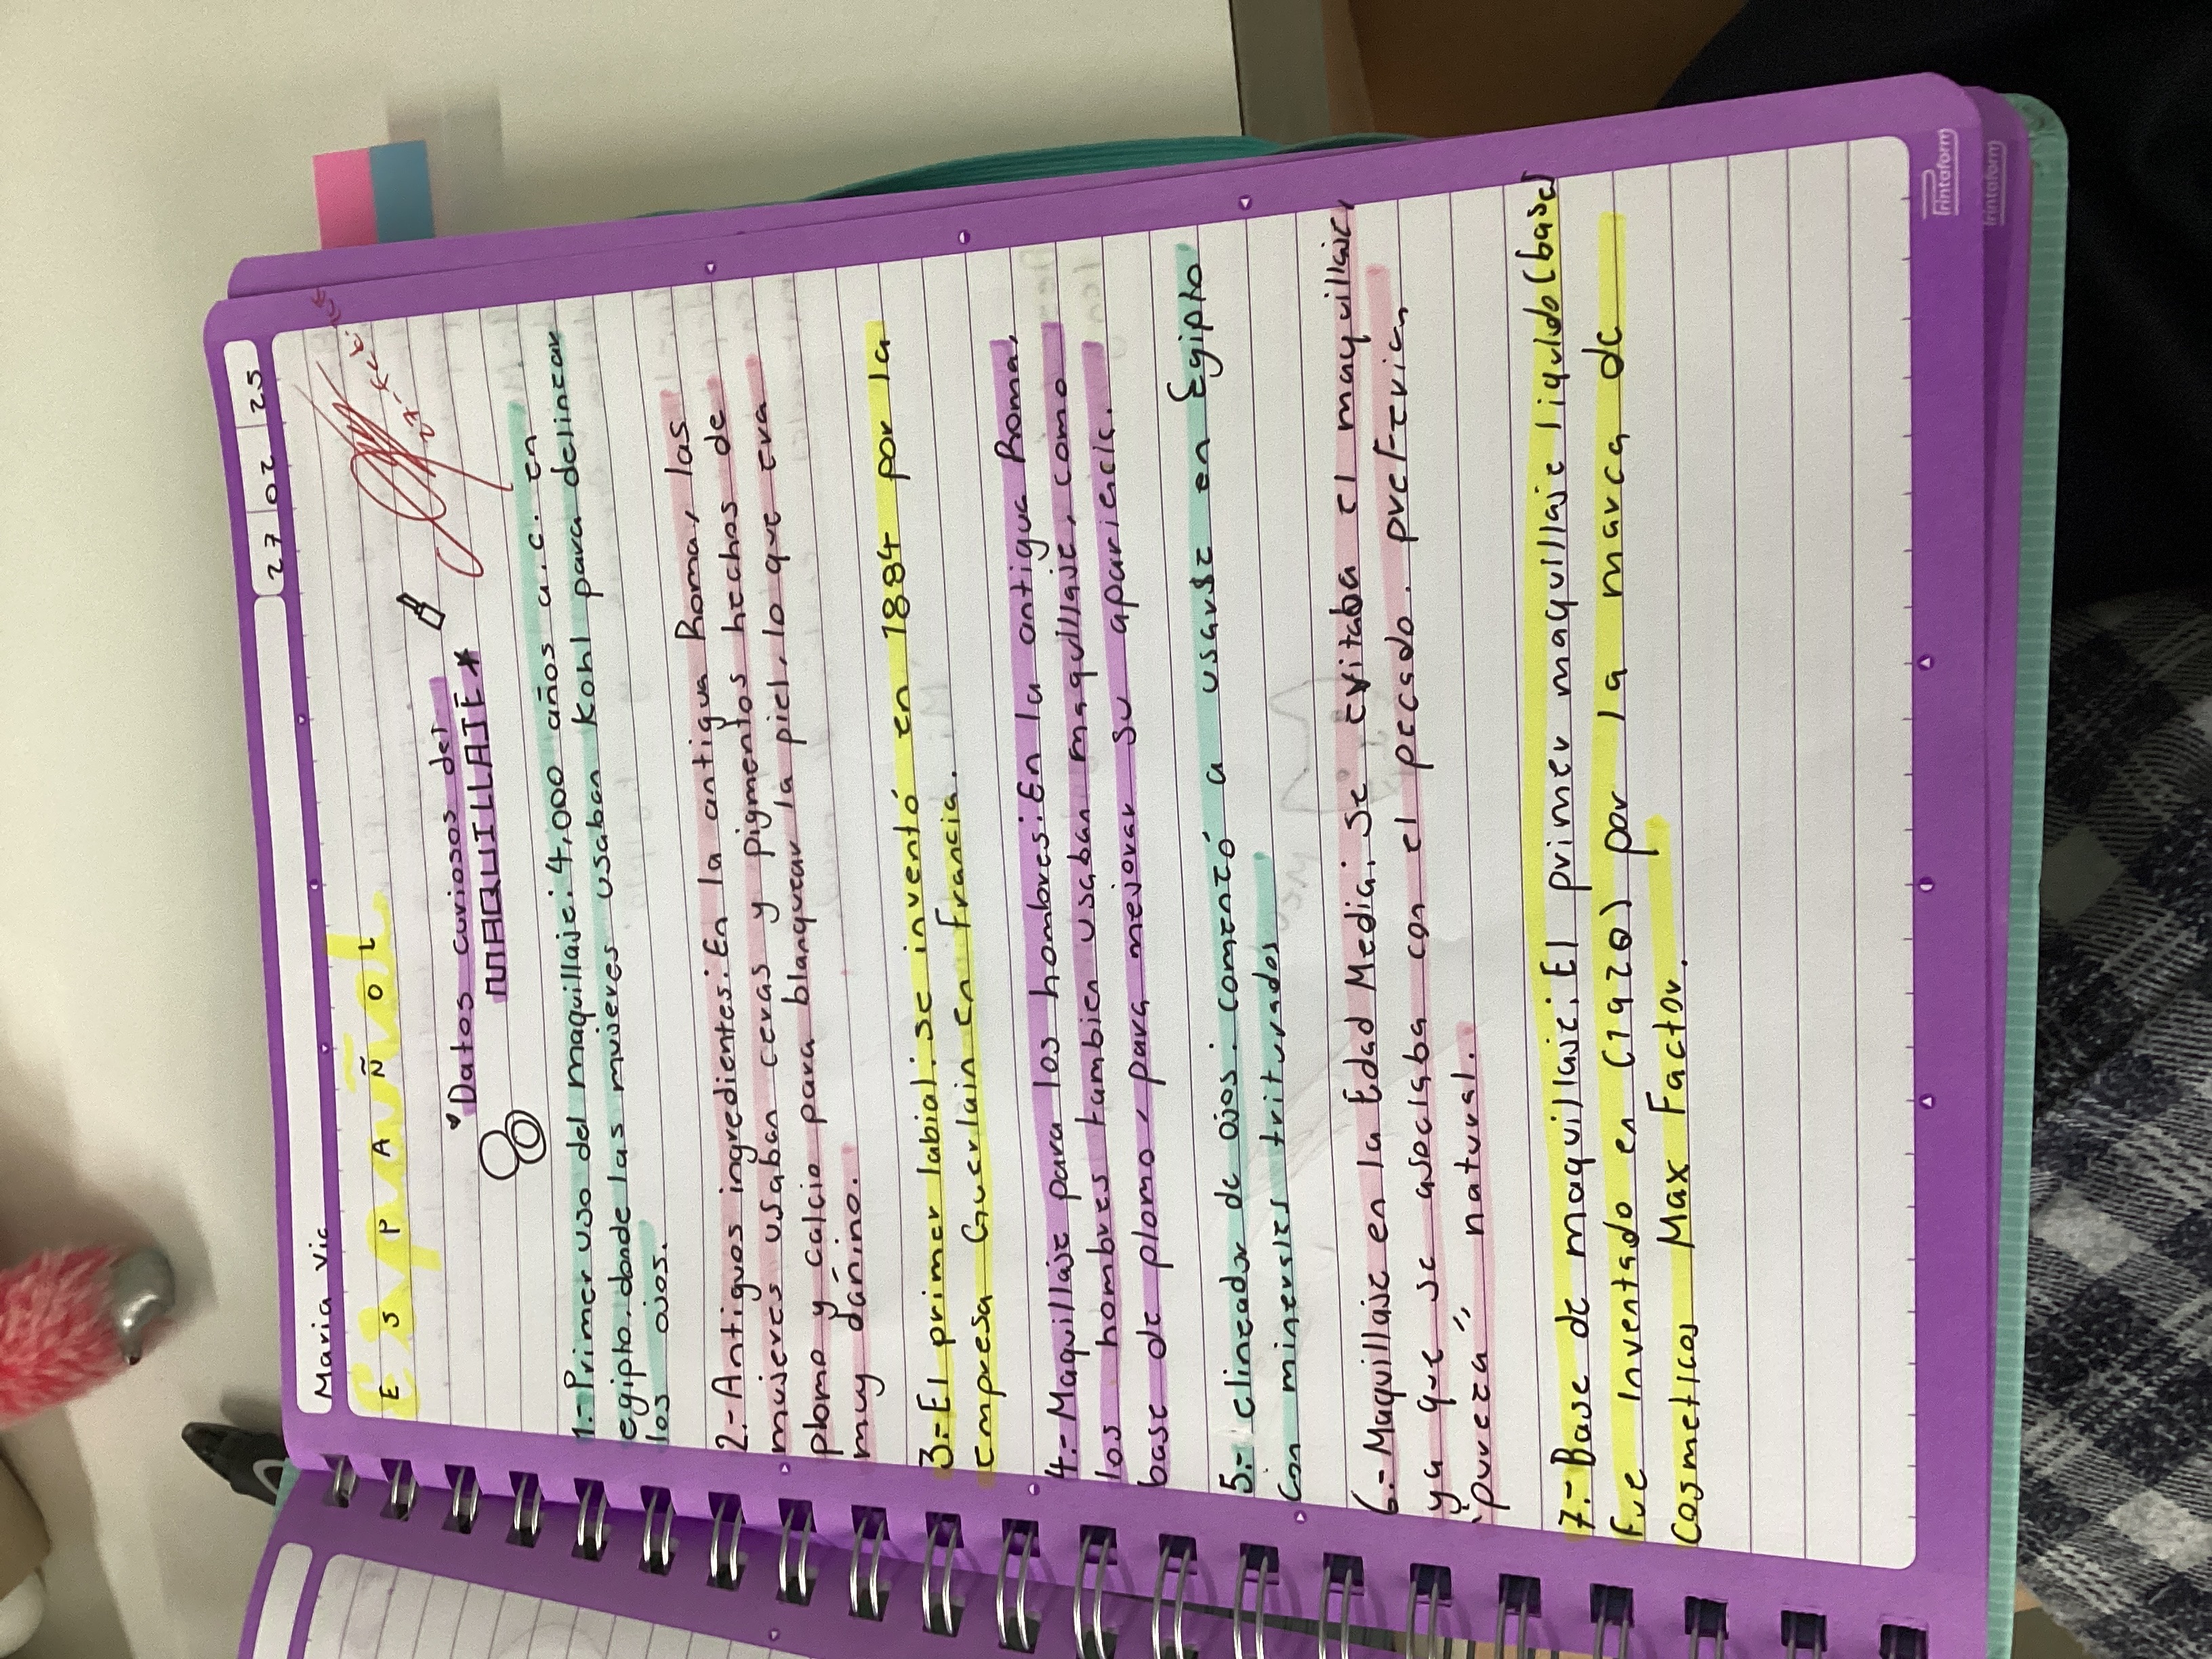 Maria Vic
27 02 25
E S P A Ñ O L
27-feb
Datos curiosos del
MAQUILLAJE
1.- Primer uso del maquillaje: 4,000 años a.c. en
egipto. donde las mujeres usaban Kohl para delinear
los ojos.
2.- Antiguos ingredientes: En la antigua Roma, las
mujeres usaban ceras y pigmentos hechos de
plomo y calcio para blanquear la piel, lo que era
muy dañino.
3.- El primer labial: se inventó en 1884 por la
empresa Guerlain en Francia.
4.- Maquillaje para los hombres: En la antigua Roma,
los hombres tambien usaban maquillaje, como
base de plomo, para mejorar su apariencia.
5.- elineador de ojos: comenzó a usarse en Egipto
con minerales triturados
6.- Maquillaje en la Edad Media: Se evitaba el maquillaje,
ya que se asociaba con el pecado. preferian
"pureza" natural.
7.- Base de maquillaje: El primer maquillaje liquido (base)
fue inventado en (1920) por la marca de
Cosmeticos Max Factor.
Printaform
Printaform